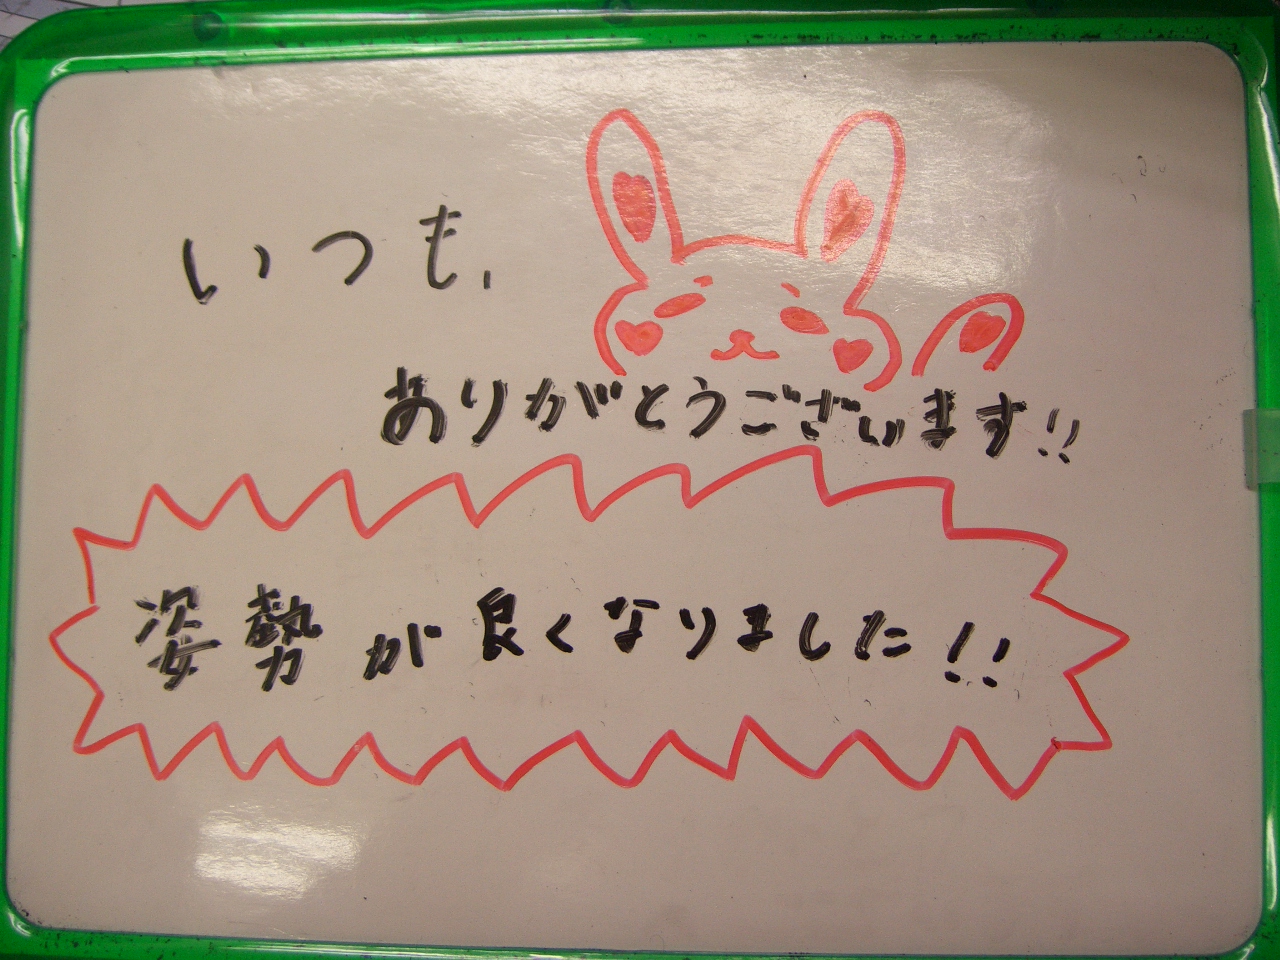 いつも、
ありがとうございます!!
姿勢が良くなりました!!